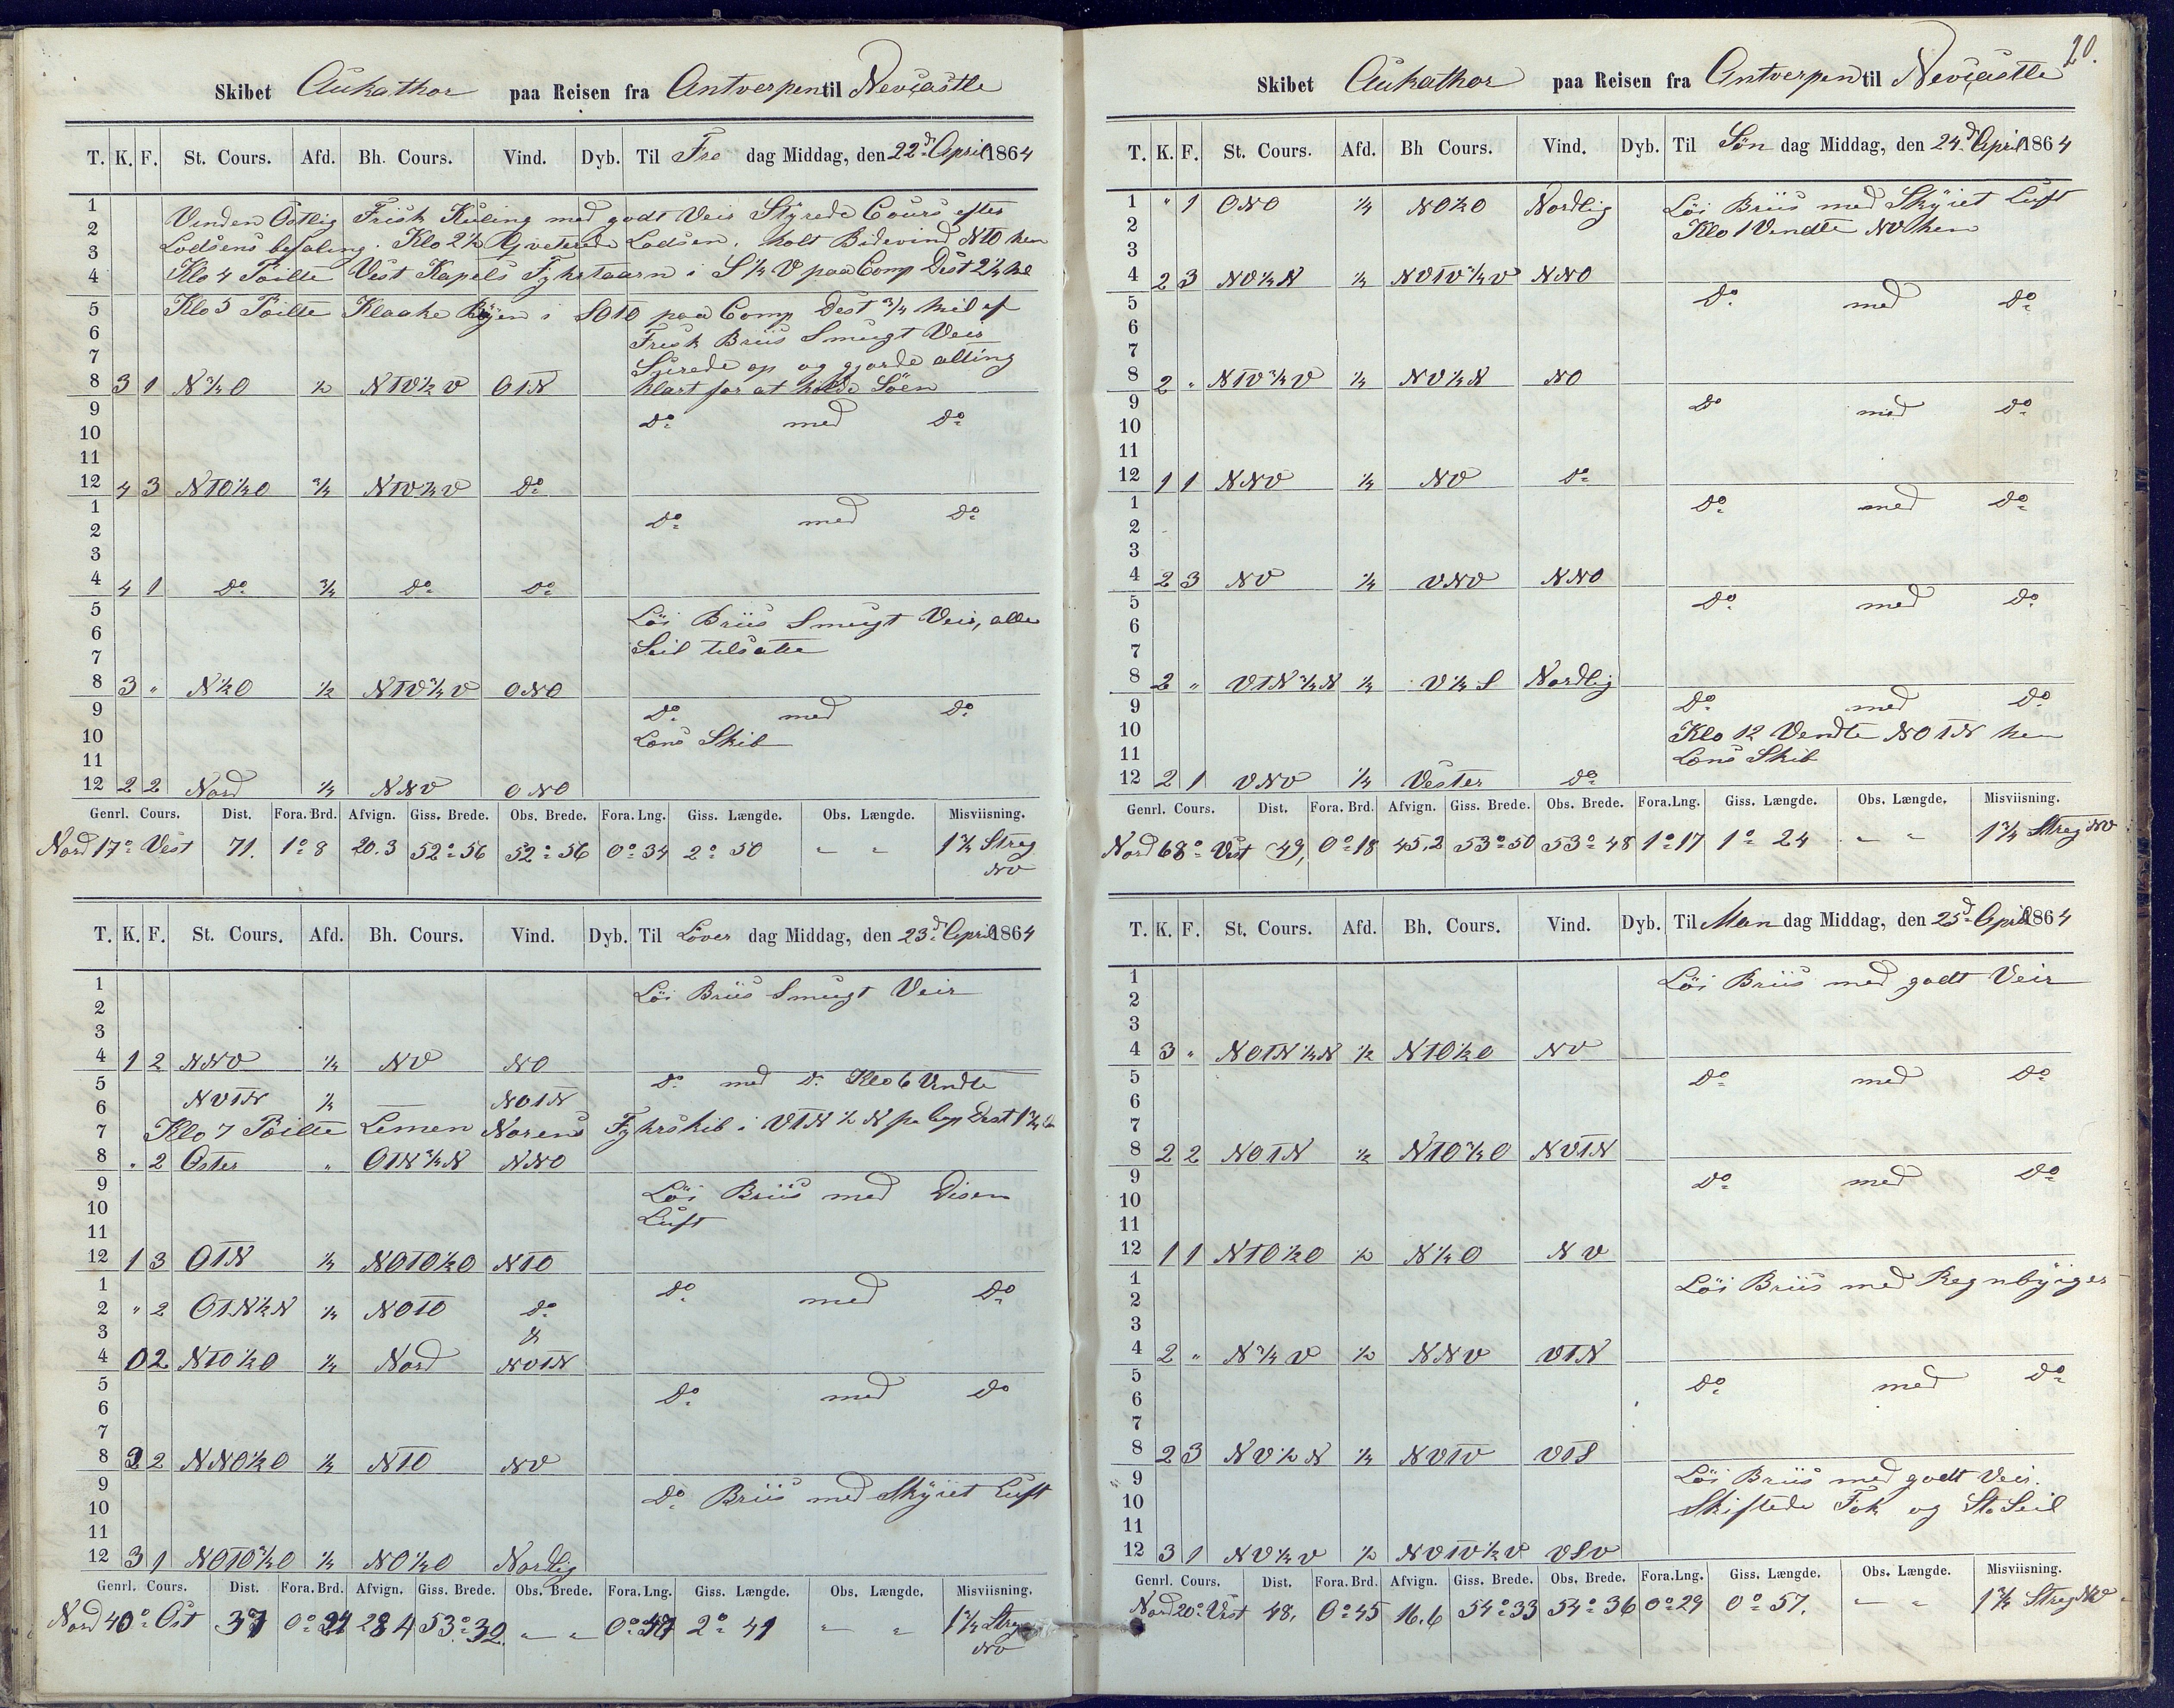 Skibet Aukathor paa Reisen fra Antverpen til Nevcastle
T. K. F. St. Cours. Afd. Bh. Cours. Vind. Dyb. Til Fre dag Middag, den 22d April 1864
1
Vinden Östlig Frisk Kuling med godt Veir Styrede Cours efter
2
Lodsens befaling. Klo 2½ Qveterede Lodsen. holt Bidevind NTO hen
3
4 Klo 4 Peilte Vest Kapels Fyhrtaarn i S¼V paa Comp Dist 2½ Mil
5 Klo 5 Peilte Klaake Böyen i SOTO paa Comp Dest ¾ Mil af
6 Frisk Briis Smugt Veir
7 Sjurede op og gjorde alting
8 3 1 N¾O ½ NTV½V OTN klart for at holde Söen
9 Do med Do
10
11
12 4 3 NTO½O ¾ NTV½V Do
1 Do med Do
2
3
4 4 1 Do ¾ Do Do
5 Löi Briis Smugt Veir, alle
6 Seil tilsatte
7
8 3 " N½O ½ NTV¾V ONO
9 Do med Do
10 Lens Skib
11
12 2 2 Nord ¼ NNV ONO
Genrl. Cours. Dist. Fora. Brd. Afvign. Giss. Brede. Obs. Brede. Fora. Lng. Giss. Længde. Obs. Længde. Misviisning.
Nord 17° Vest 71. 1°8 20.3 52°56 52°56 0°34 2°50 " " 1¾ Streg
NV
T. K. F. St. Cours. Afd. Bh. Cours. Vind. Dyb. Til Löver dag Middag, den 23d April 1864
1 Löi Briis Smugt Veir
2
3
4 1 2 NNV ¼ NV NO
5 Do med Do Klo 6 Vendte
6 NVTN ¼ — NOTN
7 Klo 7 Peilte Lemen Norens Fyhrskib i VTN½N pr Cop Dest 1¾
8 " 2 Oster " OTN¾N NNO
9 Löi Briis med Disen
10 Luft
11
12 1 3 OTN ¼ NOTO½O NTO
1 Do med Do
2 " 2 OTN½N ¼ NOTO Do
3 &
4 0 2 NTO½O ¼ Nord NOTN
5 Do med Do
6
7
8 3 2 NNO½O ¼ NTO NV
9 Do Briis med Skyiet Luft
10
11
12 3 1 NOTO¾O ¼ NO½O Nordlig
Genrl. Cours. Dist. Fora. Brd. Afvign. Giss. Brede. Obs. Brede. Fora. Lng. Giss. Længde. Obs. Længde. Misviisning.
Nord 40° Ost 37 28 4 53°32 " " 2°41 " " 1¾ Streg
NV
20.
Skibet Aukathor paa Reisen fra Antverpen til Nevcastle
T. K. F. St. Cours. Afd. Bh Cours. Vind. Dyb. Til Sön dag Middag, den 24d April 1864
1 " 1 ONO ¼ NO½O Nordlig Löi Briis med Skyiet Luft
2 Klo 1 Vendte NV hen
3
4 2 3 NV½N ¼ NVTV¾V NNO
5 Do med Do
6
7
8 2 " NTV¾V ¼ NV½N NO
9 Do med Do
10
11
12 1 1 NNV ¼ NV Do
1 Do med Do
2
3
4 2 3 NV ¼ VNV NNO
5 Do med Do
6
7
8 2 " VTN¾N ¼ V½S Nordlig
9 Do med Do
10 Klo 12 Vendte NOTN hen
11 Lens Skib
12 2 1 VNV ¼ Vester Do
Genrl. Cours. Dist. Fora. Brd. Afvign. Giss. Brede. Obs. Brede. Fora. Lng. Giss. Længde. Obs. Længde. Misviisning.
Nord 68° Vest 49, 0°18 45,2 53°50 53°48 1°17 1°24 " " 1¾ Streg NV
T. K. F. St. Cours. Afd. Bh. Cours. Vind. Dyb. Til Man dag Middag, den 25d April 1864
1 Löi Briis med godt Veir
2
3
4 3 " NOTN½N ½ NTO½O NV
5 Do med Do
6
7
8 2 2 NOTN ½ NTO¾O NVTN
9 Do med Do
10
11
12 1 1 NTO½O ½ N¼O NV
1 Löi Briis med Regnbyiger
2
3
4 2 " N¾V ½ NNV VTN
5 Do med Do
6
7
8 2 3 NV½N ¼ NVTV VTS
9 Löi Briis med godt Veir.
10 Skiftede Fok og St. Seil
11
12 3 1 NV½V ½ NVTV½V VSV
Genrl. Cours. Dist. Fora. Brd. Afvign. Giss. Brede. Obs. Brede. Fora. Lng. Giss. Længde. Obs. Længde. Misviisning.
Nord 20° Vest 48. 0°45 16.6 54°33 54°36 0°29 0°57. " " 1¾ Streg NV